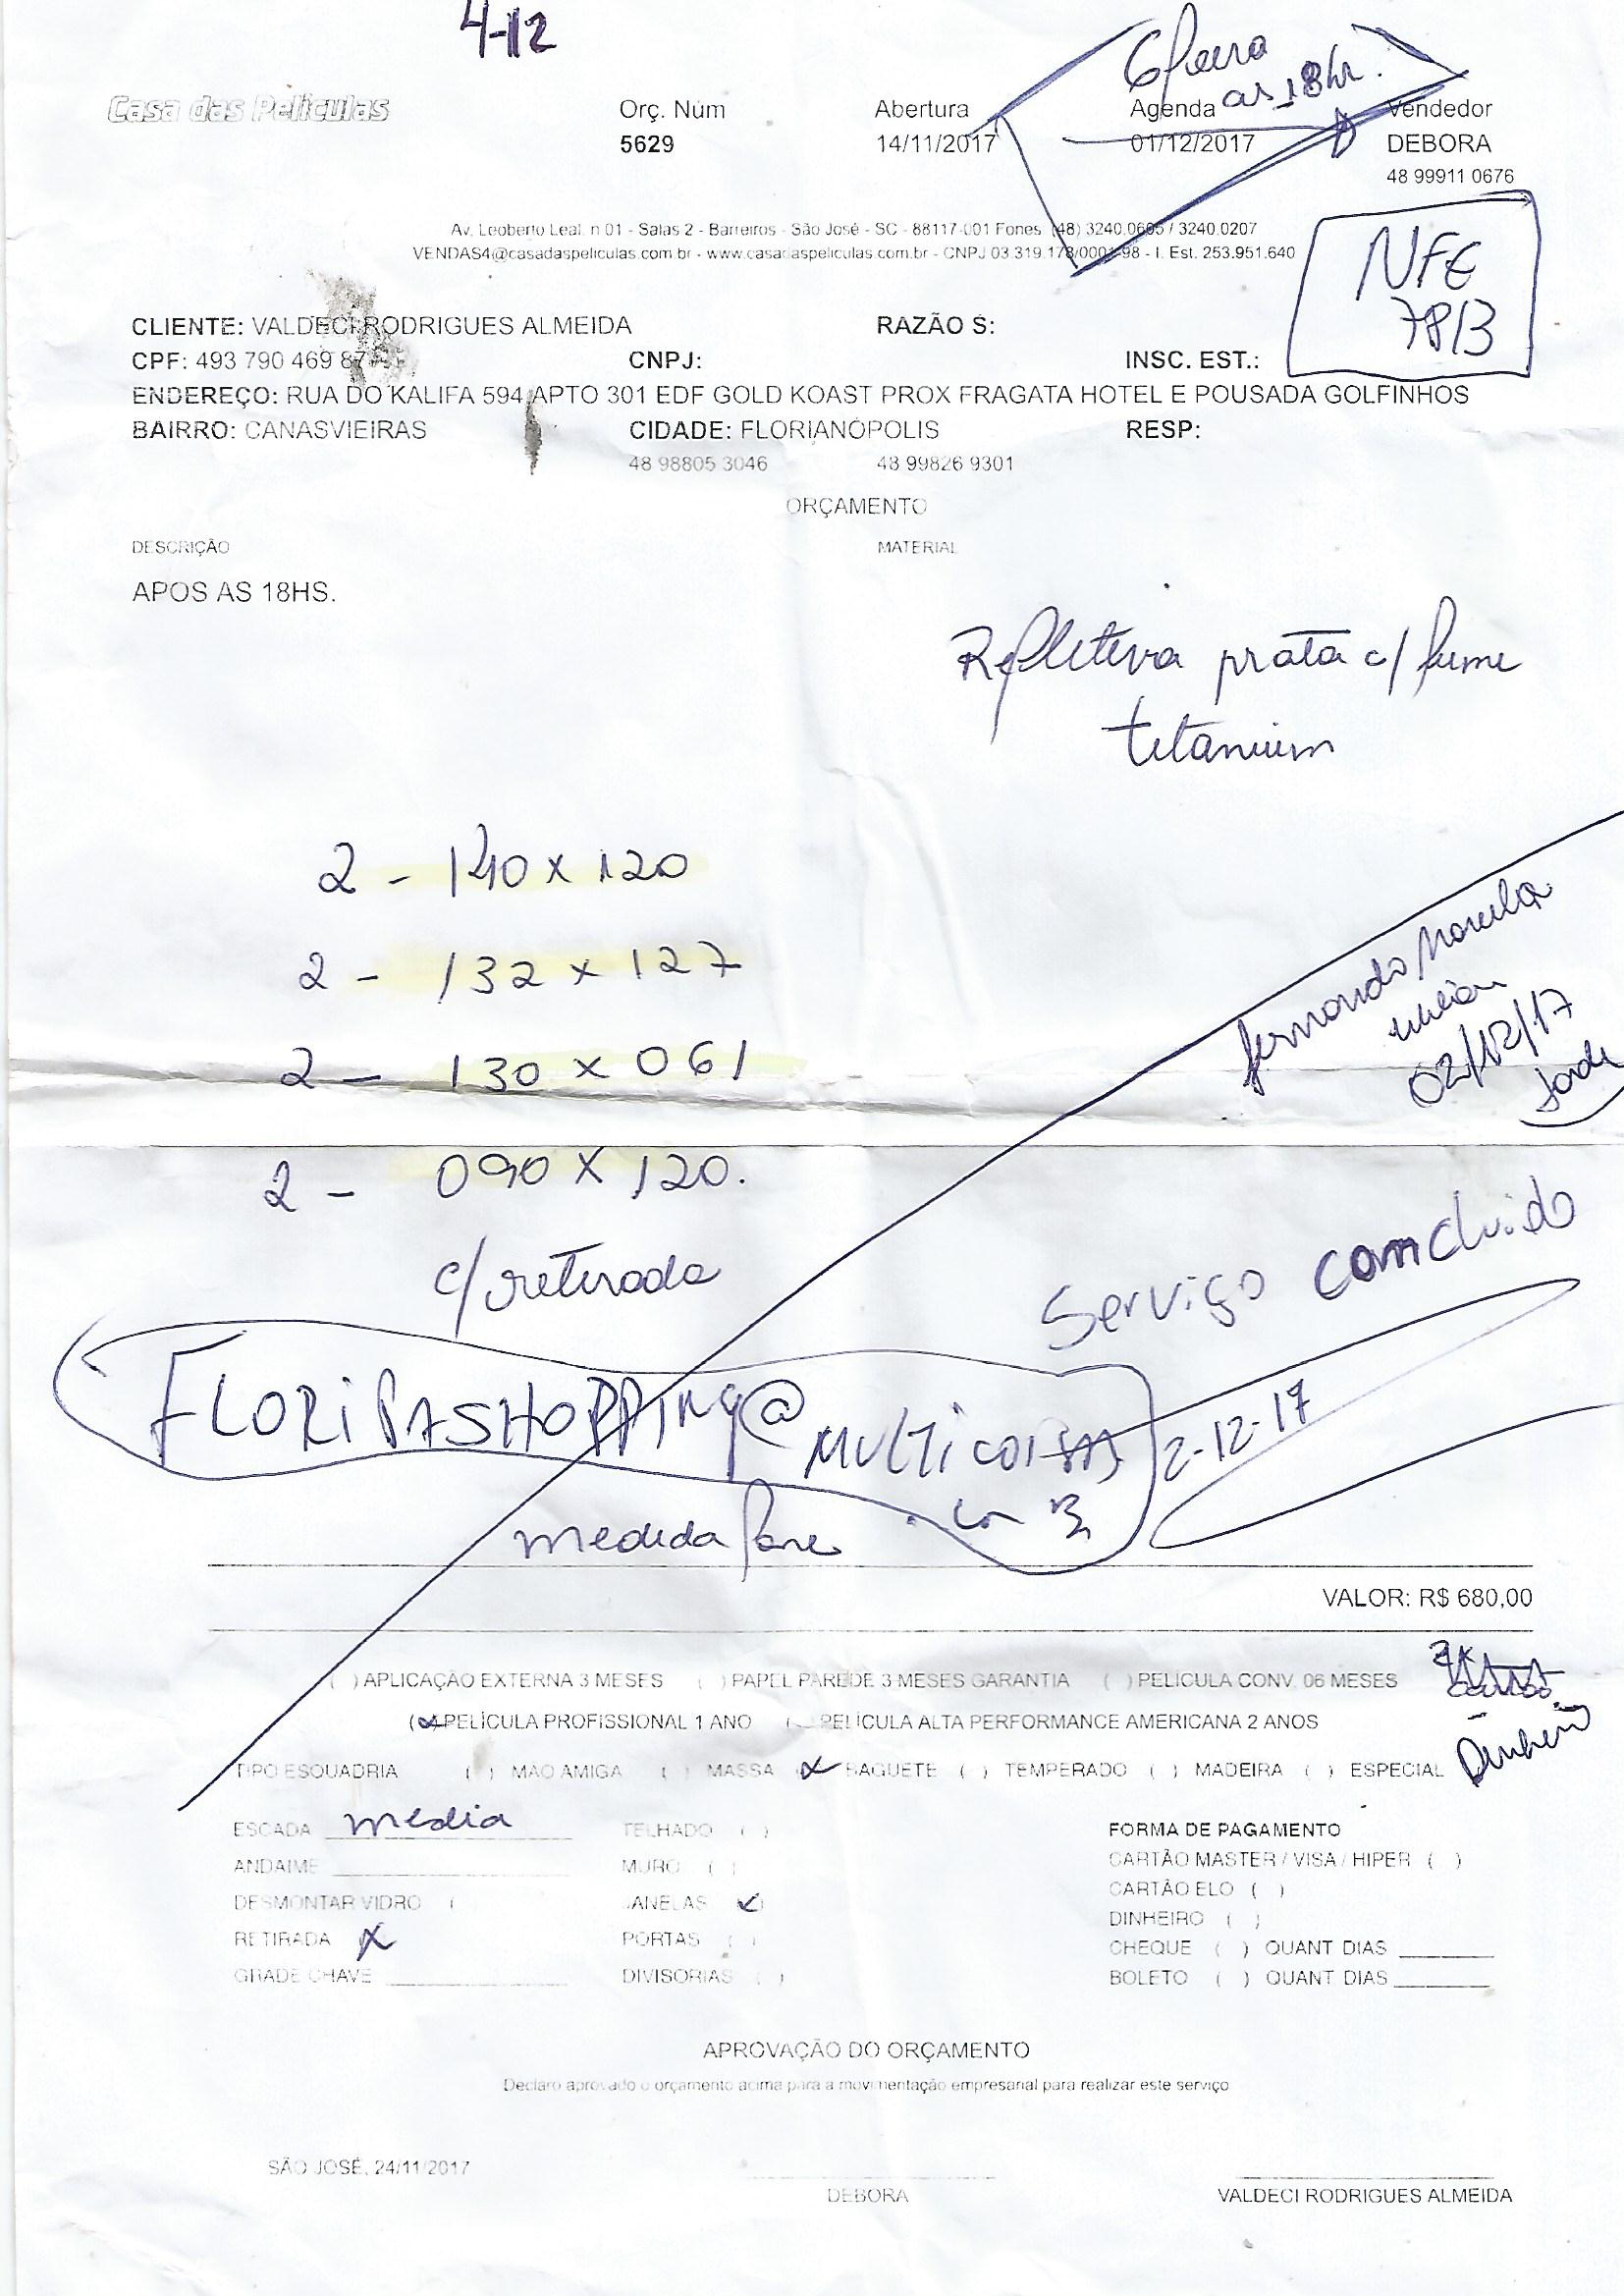 4-12
6ª feira
as 18hr.
Casa das Películas
Orç. Núm
Abertura
Agenda
Vendedor
5629
14/11/2017
01/12/2017
DEBORA
48 99911 0676
Av. Leoberto Leal. n 01 - Salas 2 - Barreiros - São José - SC - 88117-001 Fones (48) 3240.0605 / 3240.0207
VENDAS4@casadaspeliculas.com.br - www.casadaspeliculas.com.br - CNPJ 03.319.178/0001-98 - I. Est. 253.951.640
NFE
7813
CLIENTE: VALDECI RODRIGUES ALMEIDA
RAZÃO S:
CPF: 493 790 469 87
CNPJ:
INSC. EST.:
ENDEREÇO: RUA DO KALIFA 594 APTO 301 EDF GOLD KOAST PROX FRAGATA HOTEL E POUSADA GOLFINHOS
BAIRRO: CANASVIEIRAS
CIDADE: FLORIANÓPOLIS
RESP:
48 98805 3046
48 99826 9301
ORÇAMENTO
DESCRIÇÃO
MATERIAL
APOS AS 18HS.
Refletiva prata c/ fume
titanium
2 - 140 x 120
2 - 132 x 127
2 - 130 x 061
2 - 090 x 120.
c/ retirada
fernando
02/12/17
Serviço concluido
2-12-17
FLORIPASHOPPING@
MULTICOISAS
medida
VALOR: R$ 680,00
( ) APLICAÇÃO EXTERNA 3 MESES ( ) PAPEL PAREDE 3 MESES GARANTIA ( ) PELICULA CONV. 06 MESES
(x) PELÍCULA PROFISSIONAL 1 ANO ( ) PELÍCULA ALTA PERFORMANCE AMERICANA 2 ANOS
Dinheiro
TIPO ESQUADRIA ( ) MAO AMIGA ( ) MASSA (x) BAGUETE ( ) TEMPERADO ( ) MADEIRA ( ) ESPECIAL
ESCADA media
TELHADO ( )
FORMA DE PAGAMENTO
ANDAIME
MURO ( )
CARTÃO MASTER / VISA / HIPER ( )
DESMONTAR VIDRO (
JANELAS
CARTÃO ELO ( )
RETIRADA x
PORTAS ( )
DINHEIRO ( )
GRADE CHAVE
DIVISORIAS ( )
CHEQUE ( ) QUANT DIAS
BOLETO ( ) QUANT DIAS
APROVAÇÃO DO ORÇAMENTO
Declaro aprovado o orçamento acima para a movimentação empresarial para realizar este serviço
SÃO JOSÉ, 24/11/2017
DEBORA
VALDECI RODRIGUES ALMEIDA